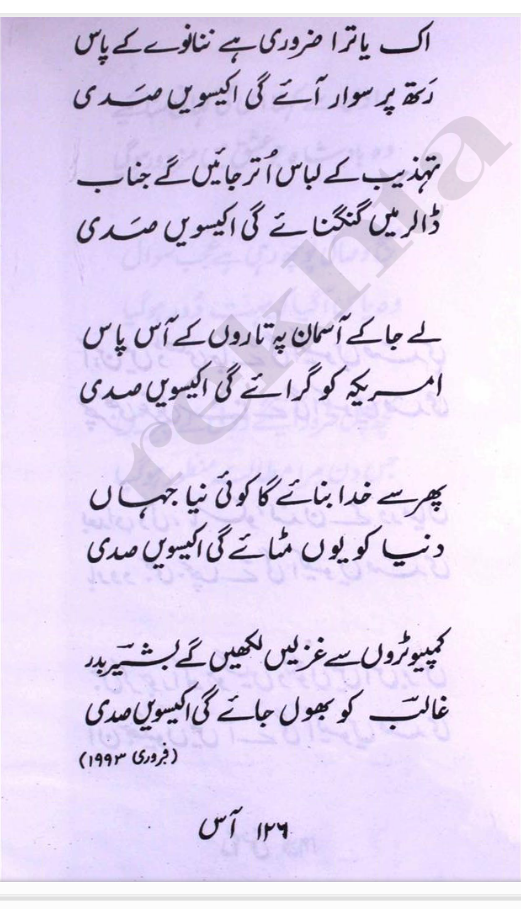 اک یاترا ضروری ہے ننانوے کے پاس
رتھ پر سوار آئے گی اکیسویں صدی
تہذیب کے لباس اُتر جائیں گے جناب
ڈالر میں گنگنائے گی اکیسویں صدی
لے جا کے آسمان پہ تاروں کے آس پاس
امریکہ کو گرائے گی اکیسویں صدی
پھر سے خدا بنائے گا کوئی نیا جہاں
دنیا کو یوں مٹائے گی اکیسویں صدی
کمپیوٹروں سے غزلیں لکھیں گے بشیر بدر
غالب کو بھول جائے گی اکیسویں صدی
(فروری ۱۹۹۳)
۱۲۶ آس
rekhta